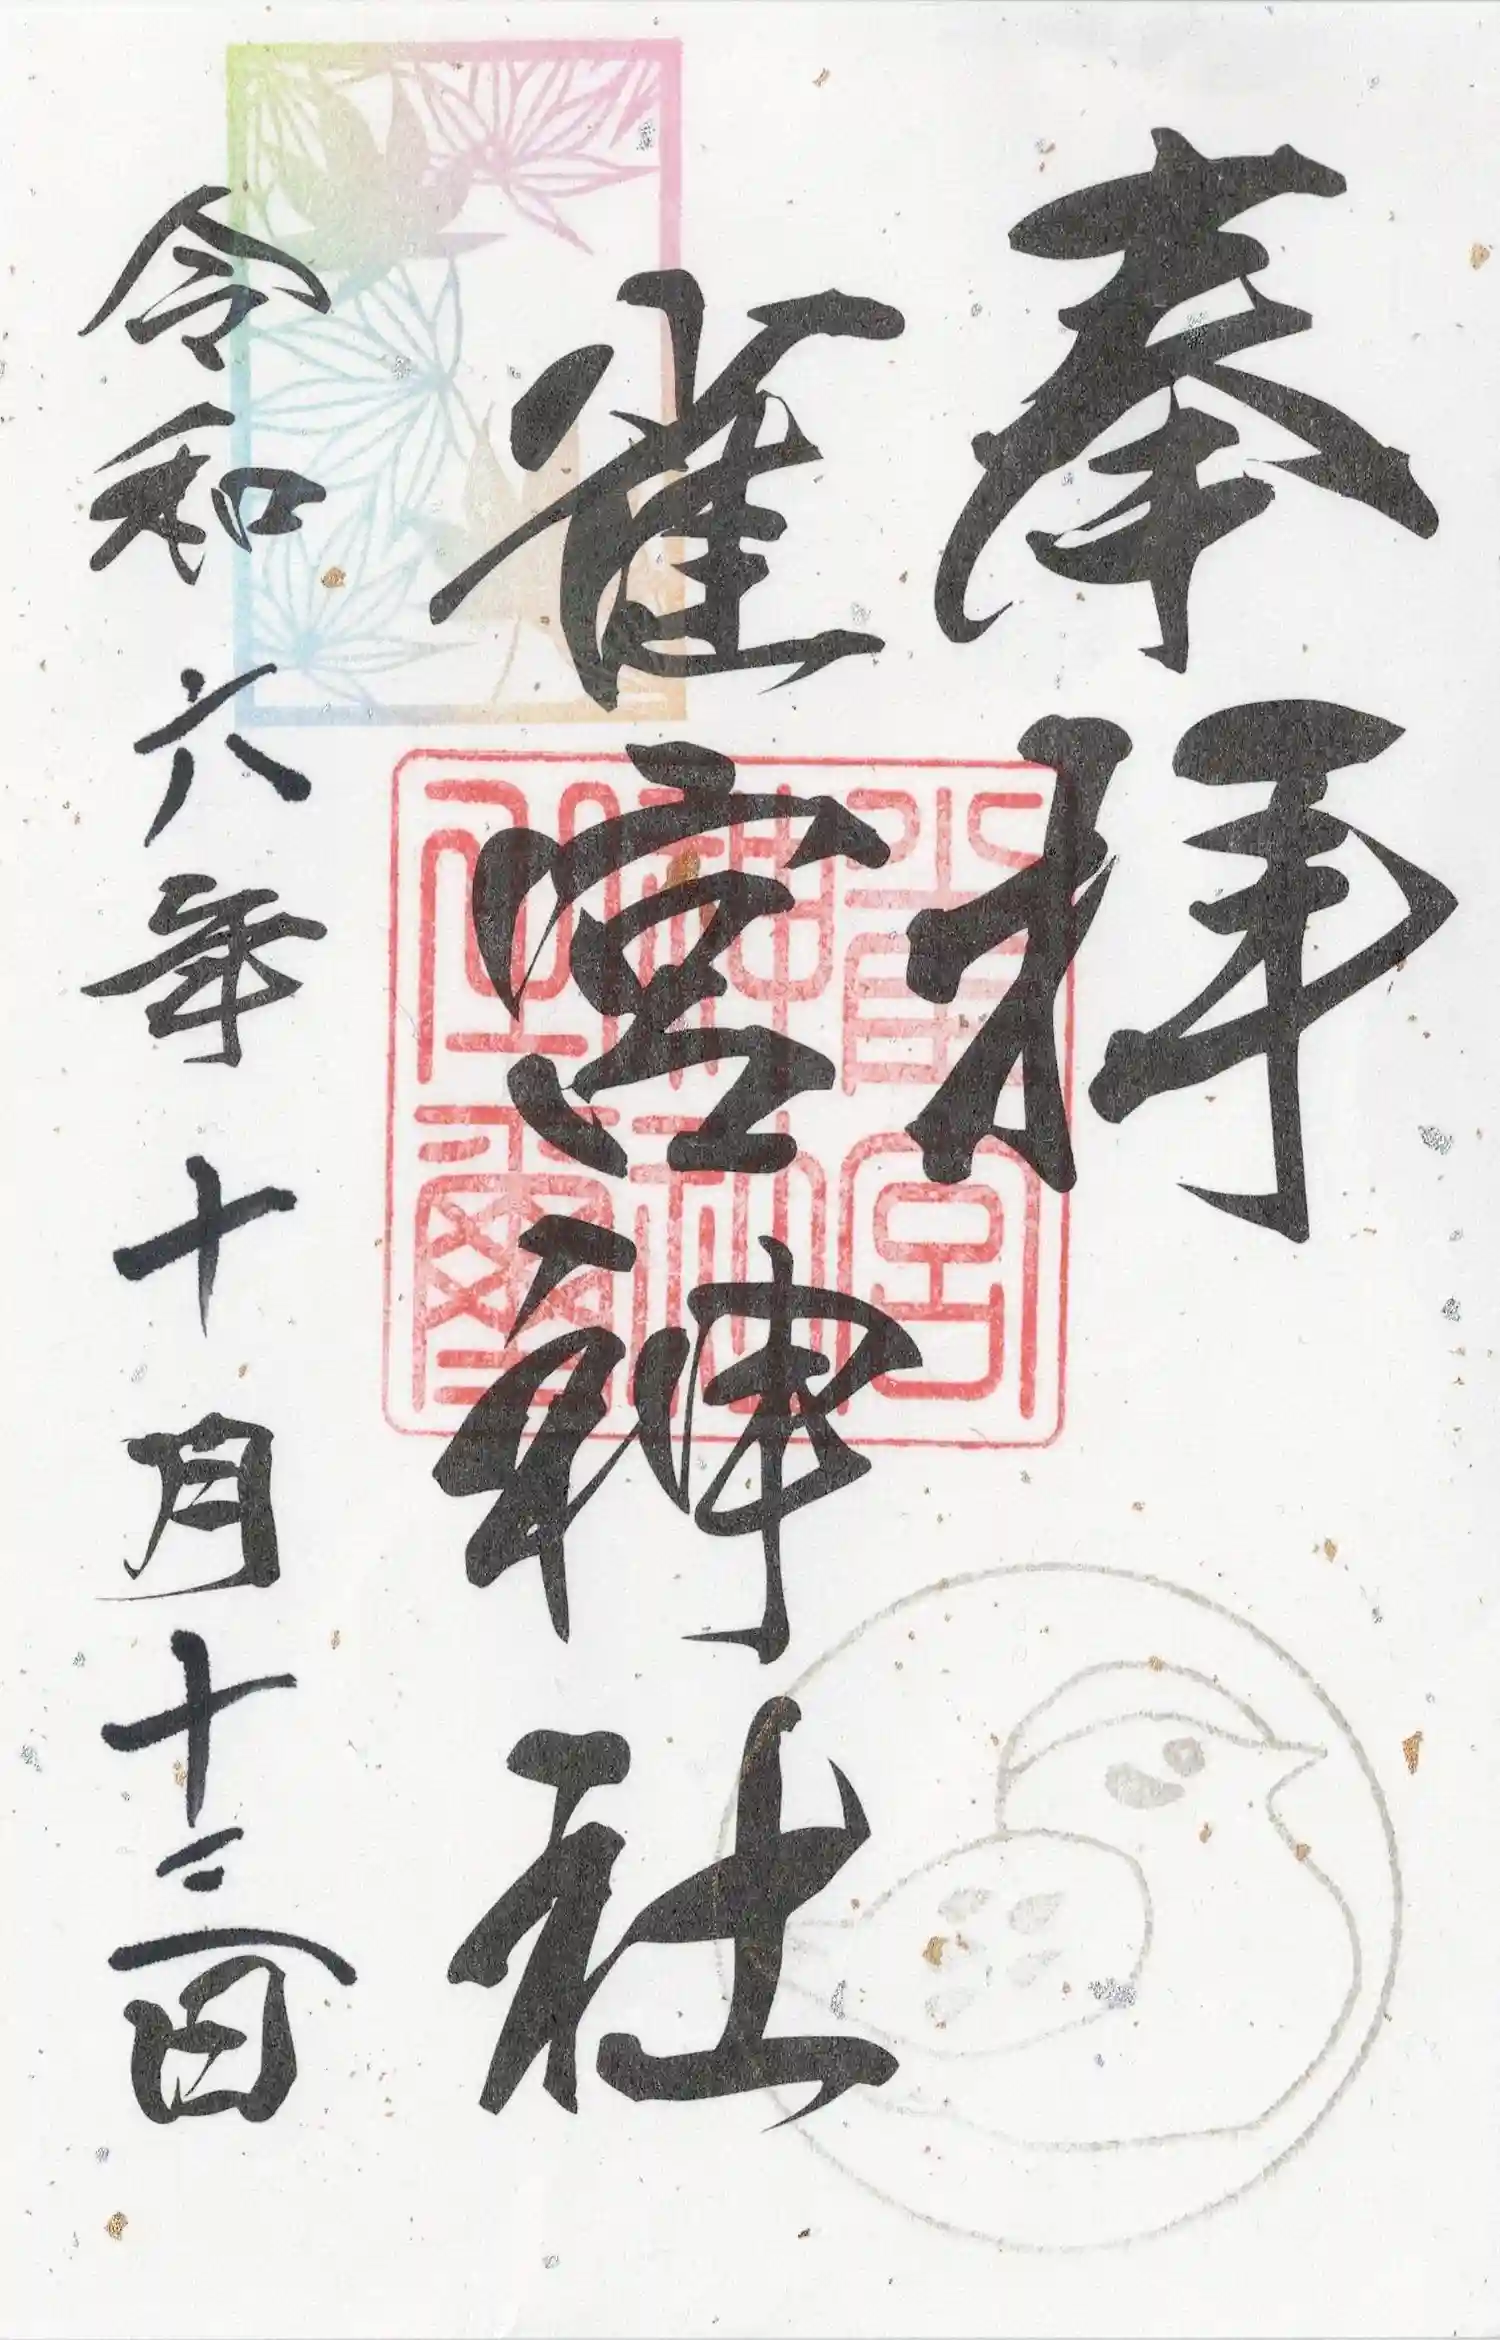 奉拝
雀宮神社
令和六年十月十三日
雀宮
神社